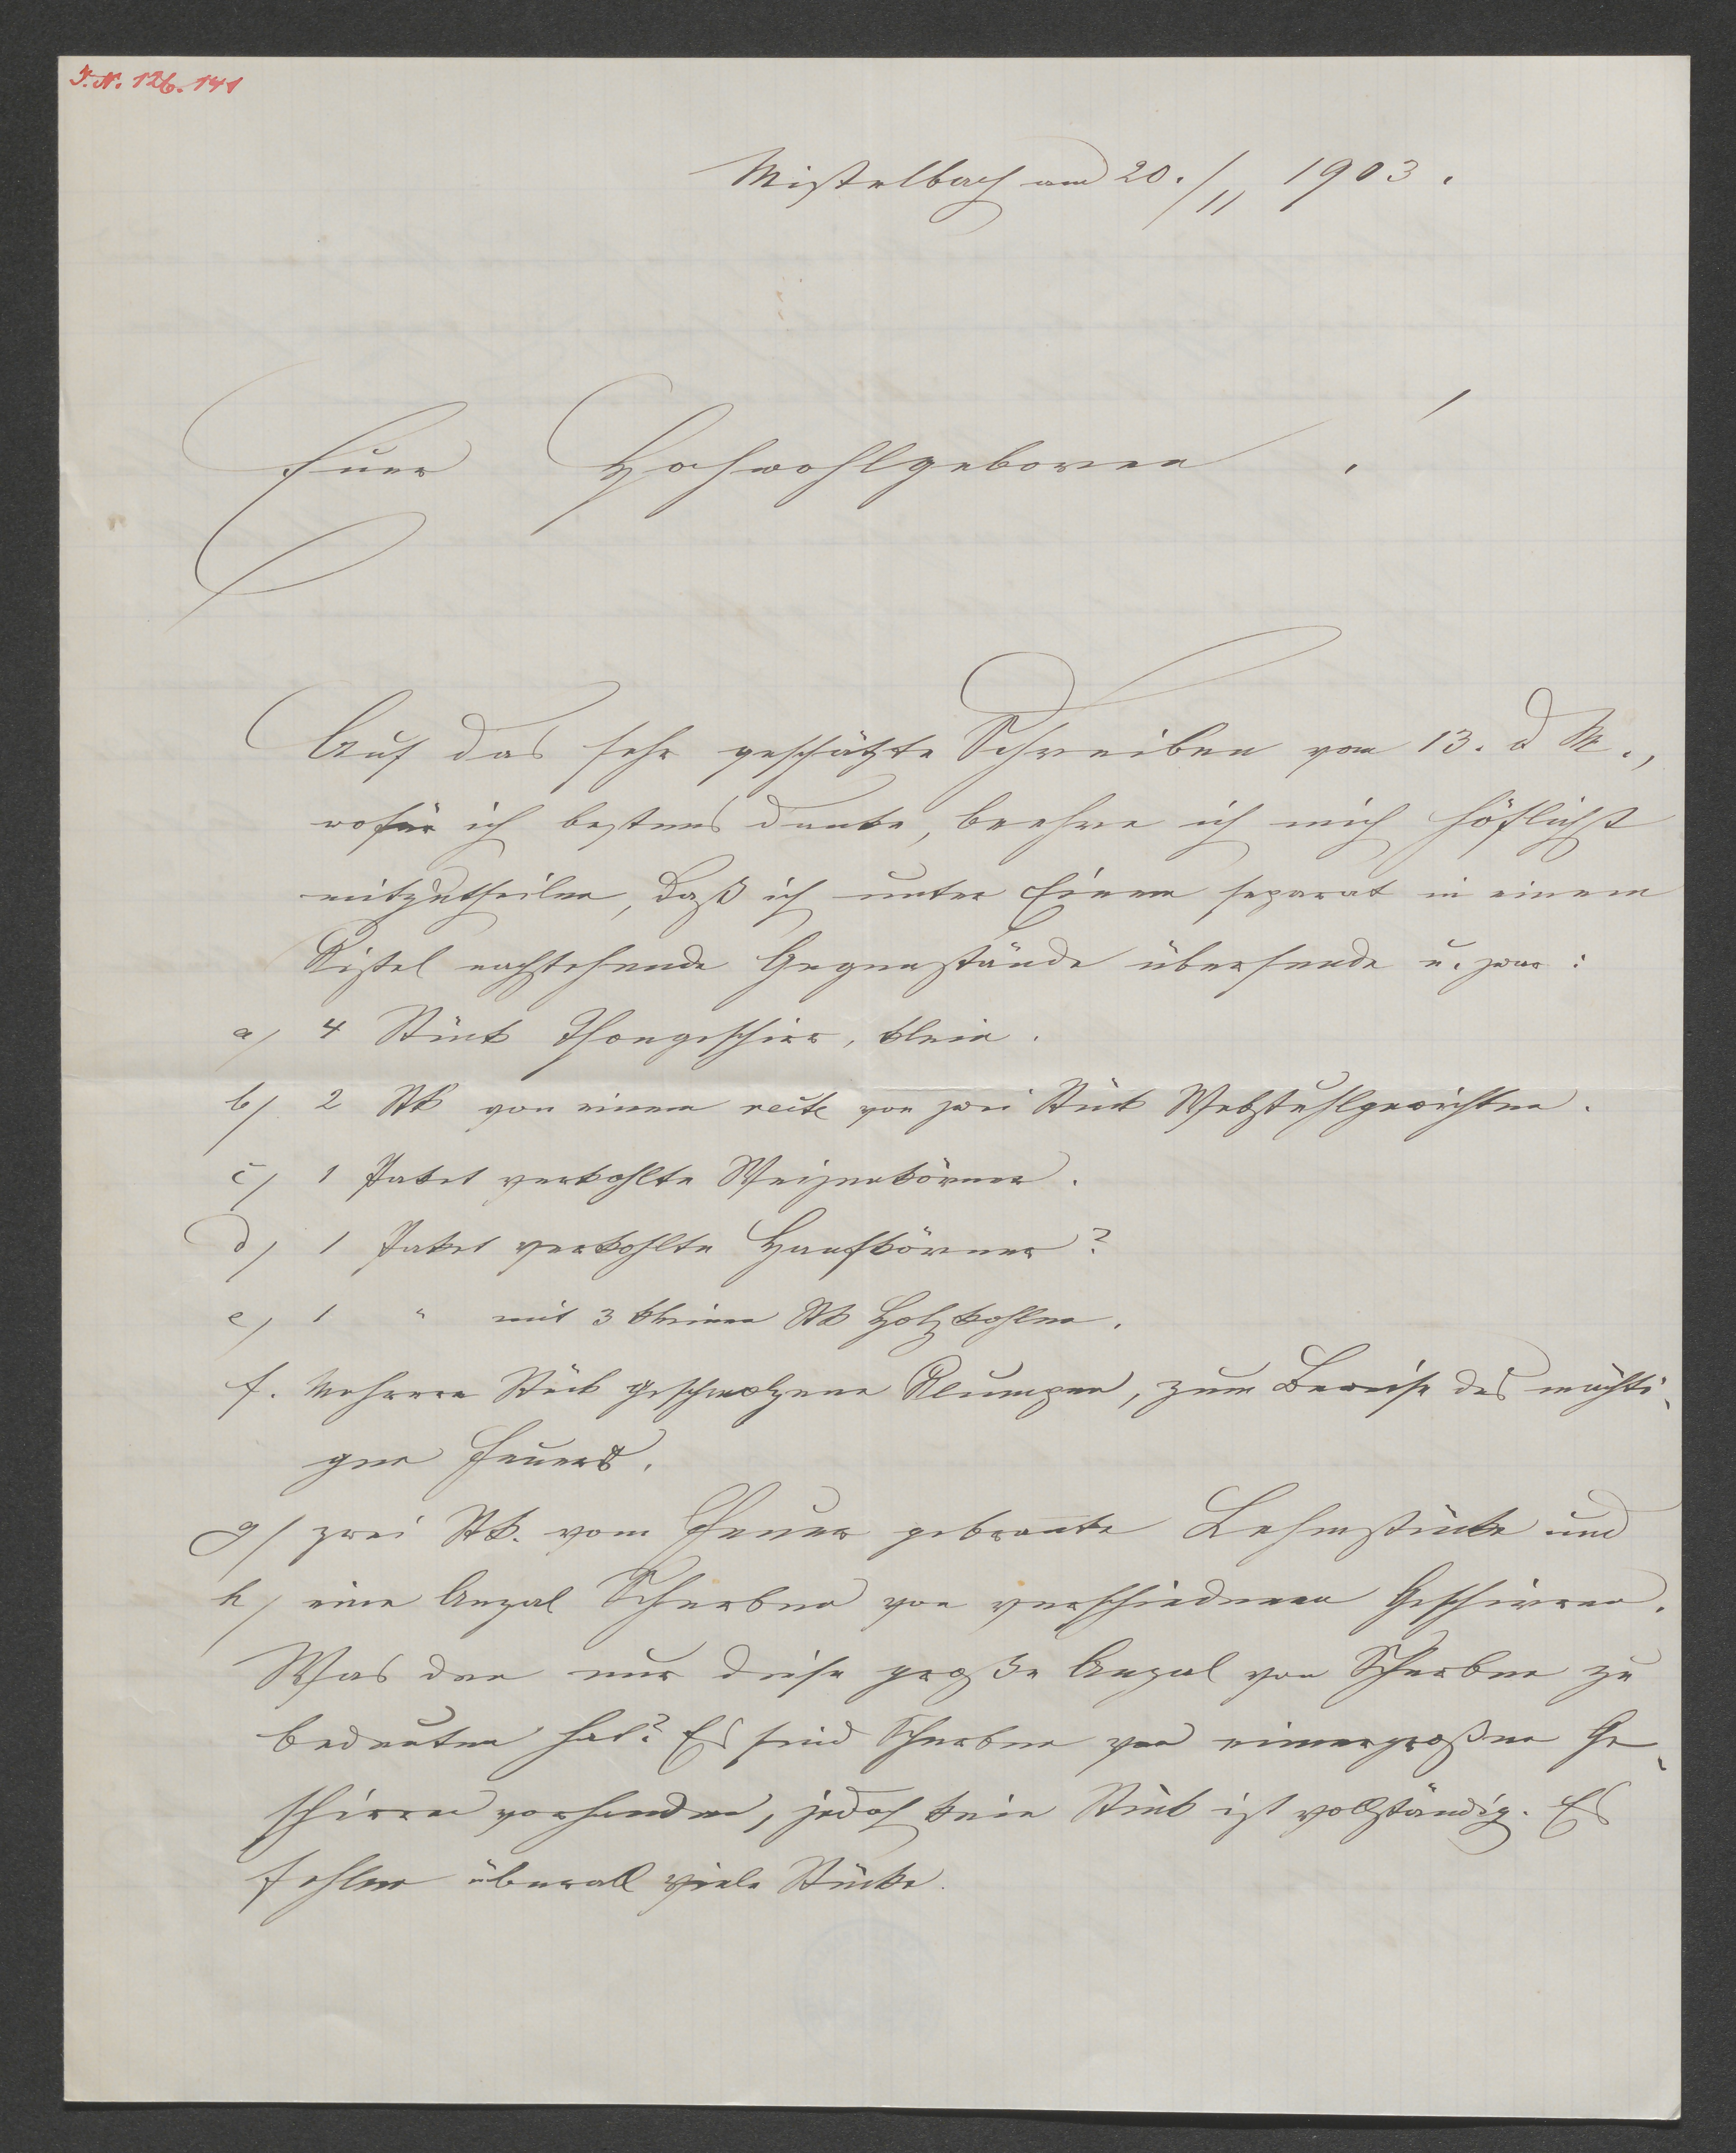 I. N. 126.141
Mistelbach am 20./11 1903.
Euer Hochwohlgeboren !
Auf das sehr geschätzte Schreiben vom 13. d M.,
wofür ich bestens danke, beehre ich mich höflichst
mitzutheilen, daß ich unter Einem separat in einem
Kistel nachstehende Gegenstände übersende u. zwar:
a/ 4 Stück Thongeschirr, klein.
b/ 2 Stk von einem recte von zwei Stück Webstuhlgewichten.
c/ 1 Paket verkohlte Weizenkörner.
d/ 1 Paket verkohlte Hanfkörner?
e/ 1 " mit 3 kleinen Stk Holzkohlen.
f. Mehrere Stück geschmolzene Klumpen, zum Beweise des mächti-
gen Feuers.
g/ zwei Stk. vom Feuer gebrannte Lehmstücke und
h/ eine Anzal Scherben von verschiedenen Geschirren.
Was den nur diese große Anzal von Scherben zu
bedeuten hat? Es sind Scherben von eimergroßen Ge-
schirren vorhanden, jedoch kein Stück ist vollständig. Es
fehlen überall viele Stücke.